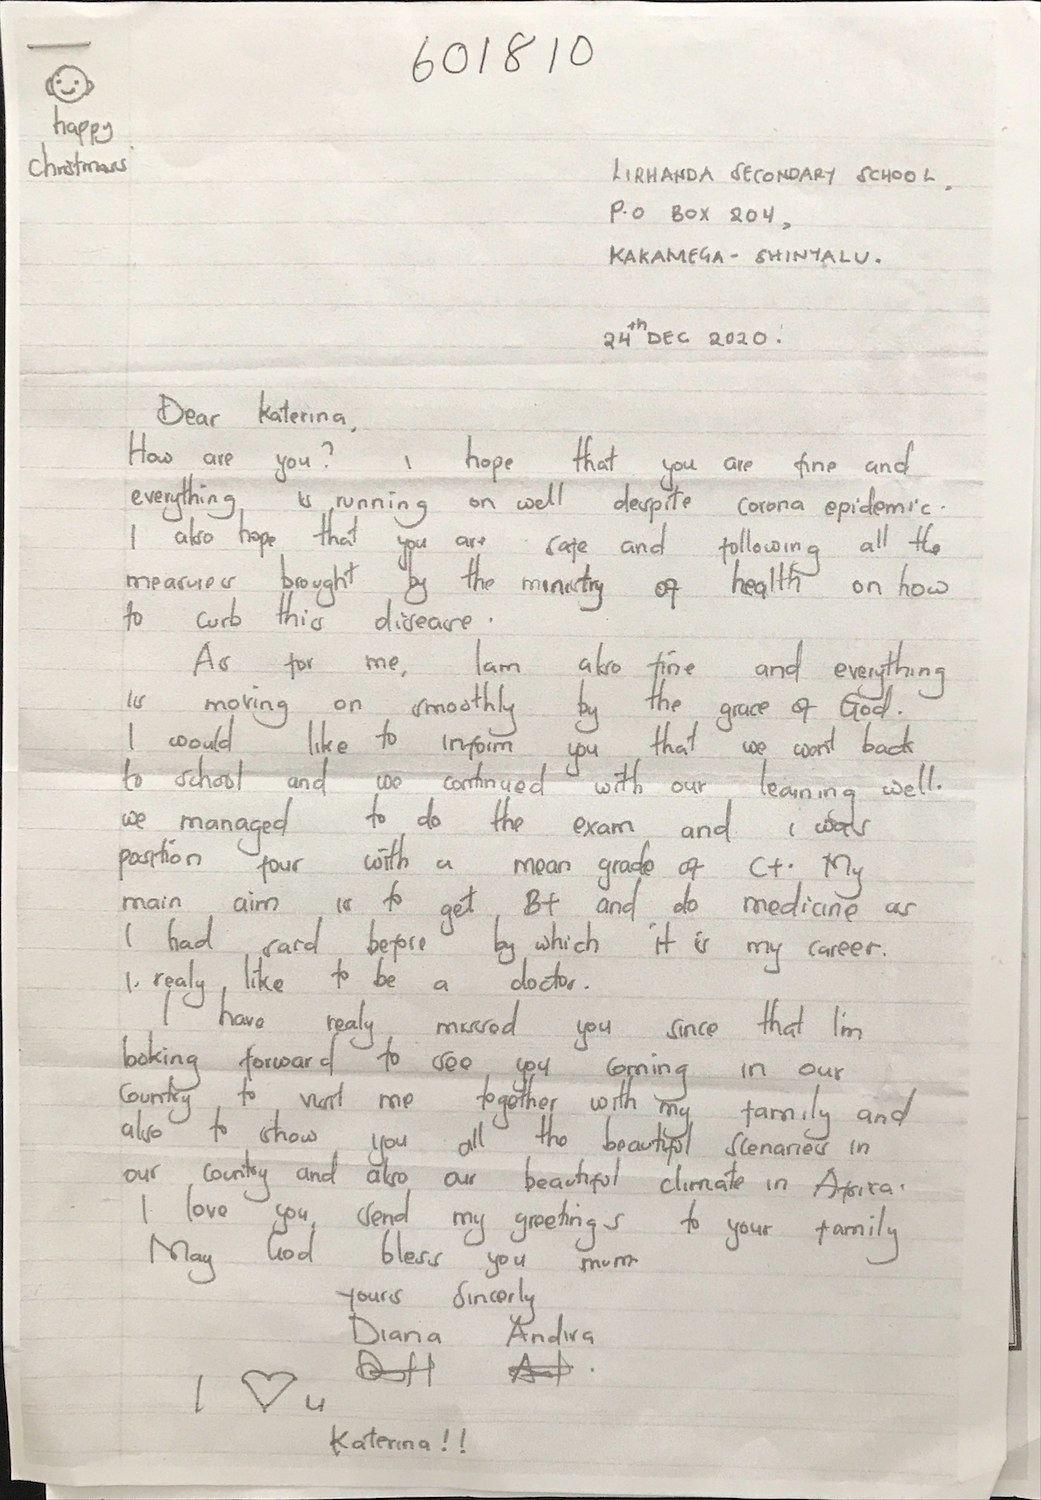 601810
happy
christmas
LIRHANDA SECONDARY SCHOOL,
P.O BOX 204,
KAKAMEGA - SHINYALU.
24th DEC 2020.
Dear Katerina,
How are you? I hope that you are fine and
everything is running on well despite corona epidemic.
I also hope that you are safe and following all the
measures brought by the ministry of health on how
to curb this disease.
As for me, Iam also fine and everything
is moving on smoothly by the grace of God.
I would like to inform you that we went back
to school and we continued with our learning well.
we managed to do the exam and i was
position four with a mean grade of C+. My
main aim is to get B+ and do medicine as
I had said before by which it is my career.
I realy like to be a doctor.
I have realy missed you since that I'm
looking forward to see you coming in our
country to visit me together with my family and
also to show you all the beautiful scenaries in
our country and also our beautiful climate in Africa.
I love you, send my greetings to your family
May God bless you mum
yours sincerly
Diana Andiva
I ♡ u
Katerina!!